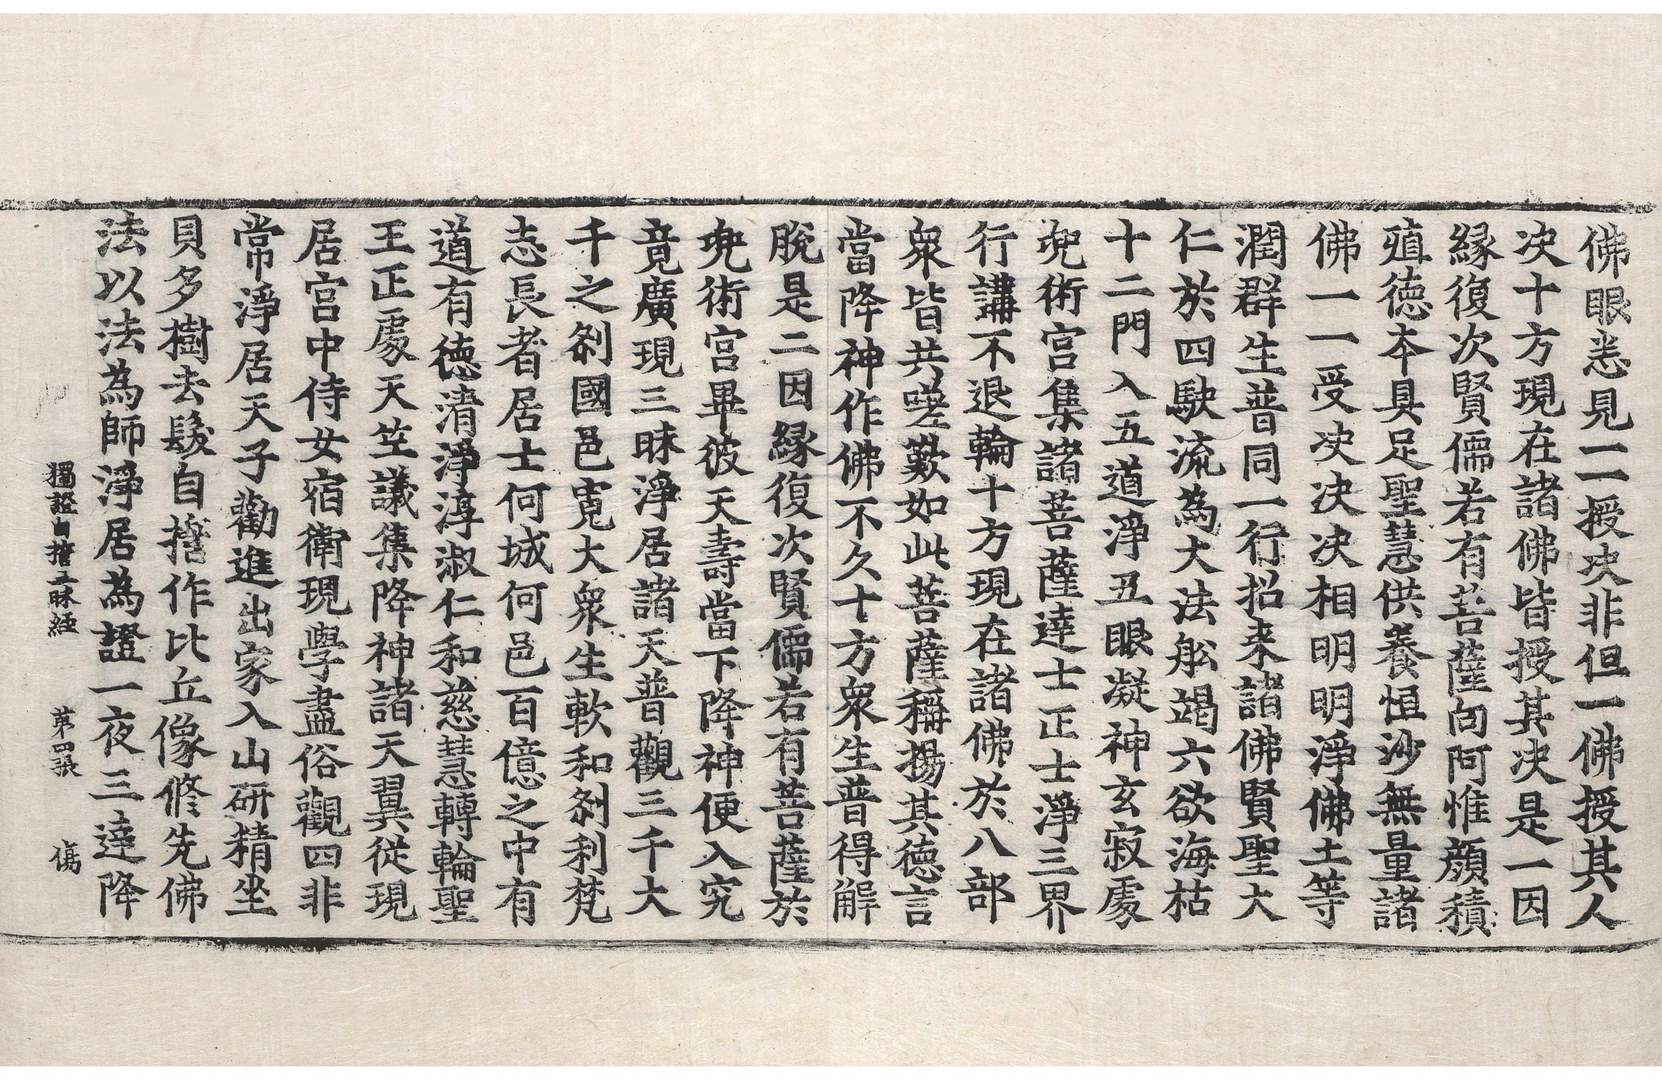 佛眼悉見一一授决非但一佛授其人
决十方現在諸佛皆授其决是一因
緣復次賢儒若有菩薩向阿惟顔積
殖德本具足聖慧供養恒沙無量諸
佛一一受决决决相明明淨佛土等
潤群生普同一行招来諸佛賢聖大
仁於四駛流為大法舩竭六欲海枯
十二門入五道淨五眼凝神玄寂處
兜術宮集諸菩薩達士正士淨三界
行講不退輪十方現在諸佛於八部
衆皆共嗟歎如此菩薩稱揚其德言
當降神作佛不久十方衆生普得解
脫是二因緣復次賢儒若有菩薩於
兜術宮畢彼天壽當下降神便入究
竟廣現三昧淨居諸天普觀三千大
千之剎國邑寬大衆生軟和剎利梵
志長者居士何城何邑百億之中有
道有德清淨淳淑仁和慈慧轉輪聖
王正處天竺議集降神諸天翼從現
居宮中侍女宿衛現學盡俗觀四非
常淨居天子勸進出家入山研精坐
貝多樹去髮自擔作比丘像脩先佛
法以法為師淨居為證一夜三達降
獨證自擔三昧經　第四張　傷